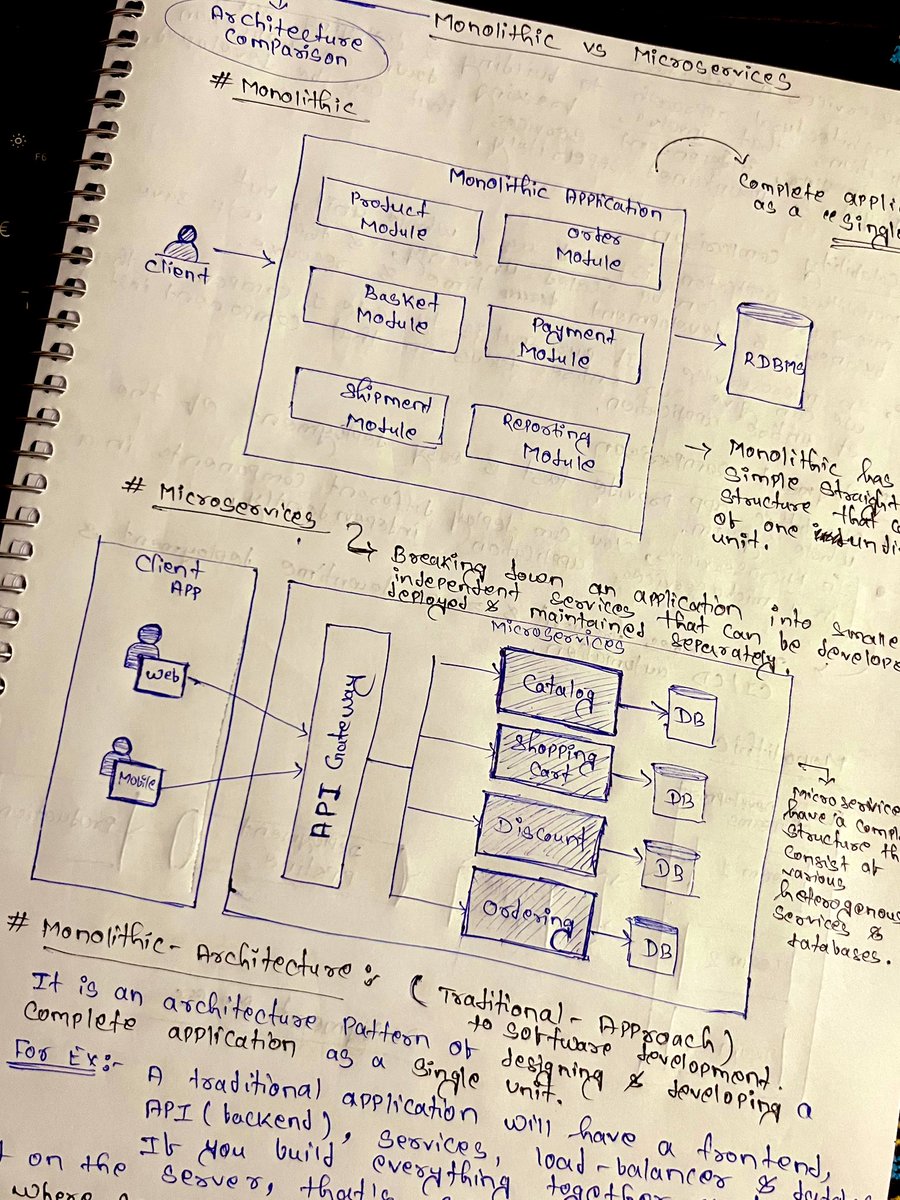 Architecture
Comparison
Monolithic vs Microservices
# Monolithic
Complete
as a "Single
Monolithic Application
Product
Module
Order
Module
Client
Basket
Module
Payment
Module
RDBMS
Shipment
Module
Reporting
Module
→ Monolithic has
Simple straight
structure that
of one
unit.
# Microservices
Breaking down an application into
independent services that can be
deployed & maintained seperately.
Client
APP
Microservices
Web
Mobile
API Gateway
Catalog
DB
Shopping
Cart
DB
Discount
DB
Ordering
DB
have a
structure
consist of
various
services &
databases.
# Monolithic-Architecture :- (Traditional-Approach)
to software development.
It is an architecture pattern of designing & developing a
complete application as a single unit.
For Ex:-
A traditional application will have a frontend,
API (backend), services, load-balancer &
If you build everything together
on the server, that's
where